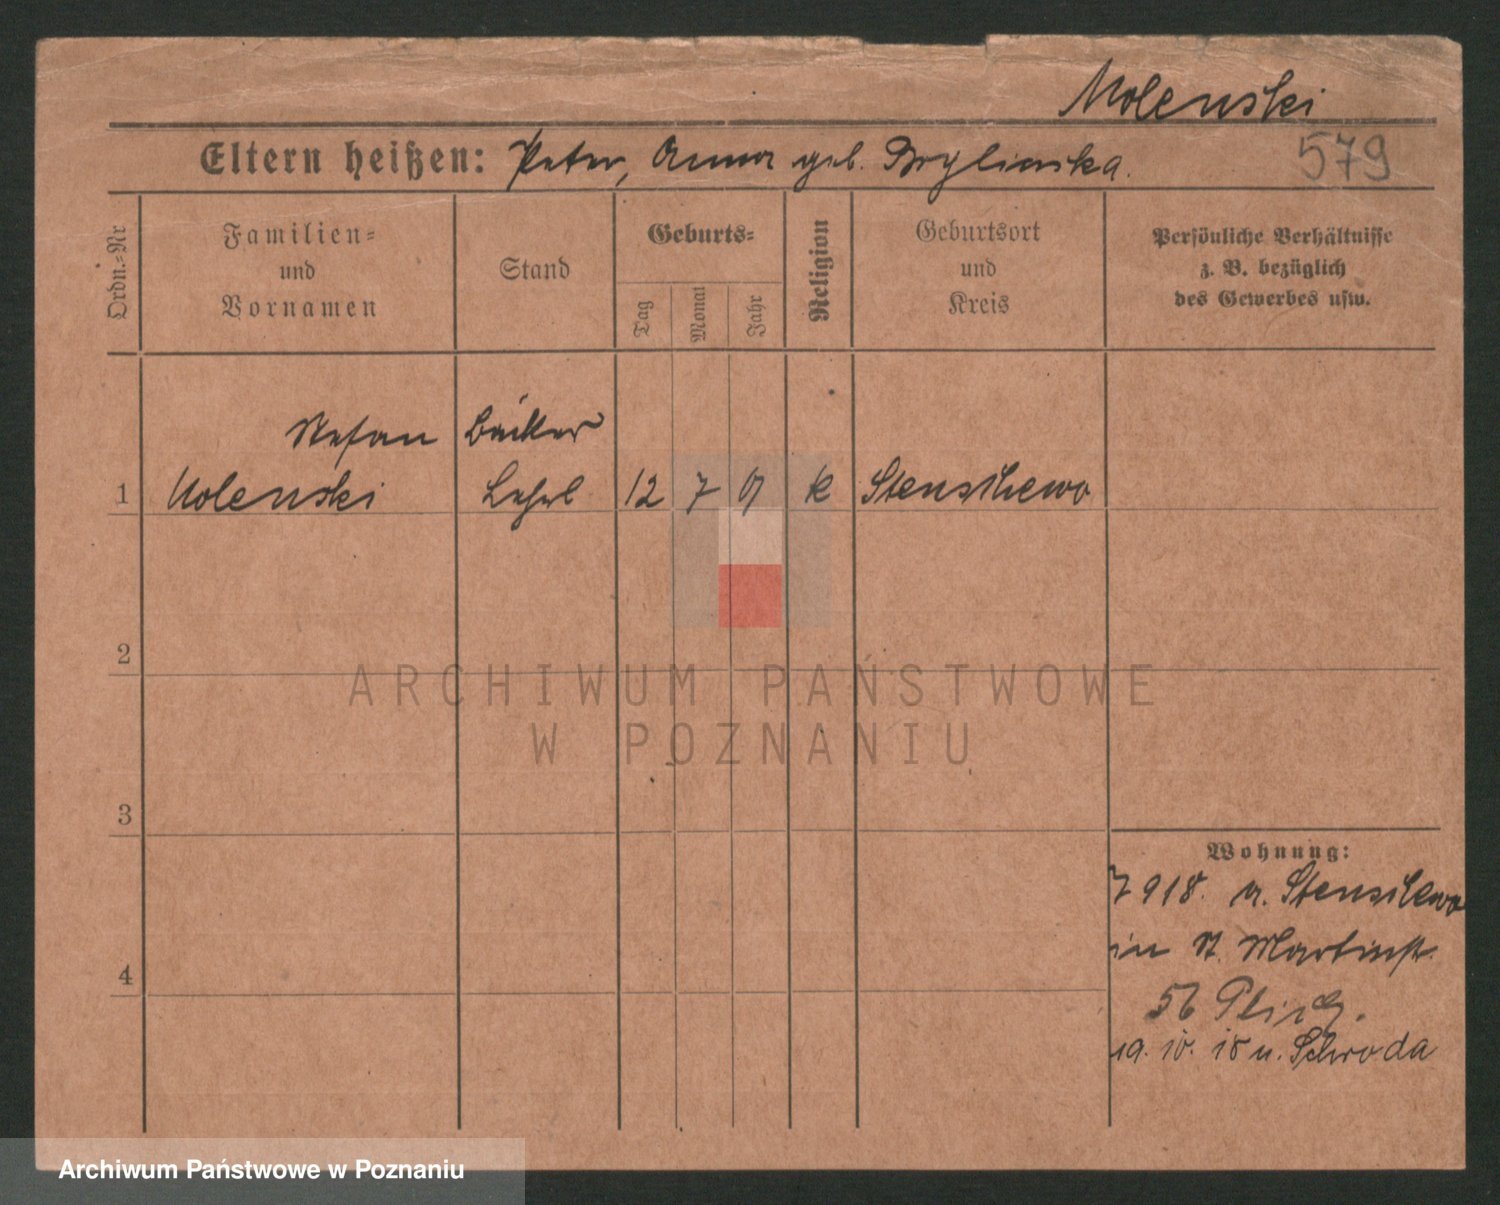 Molenski
Eltern heißen: Peter, Anna geb. Brylinska.
579
Ordn.-Nr
Familien-
und
Vornamen
Stand
Geburts-
Tag
Monat
Jahr
Religion
Geburtsort
und
Kreis
Persönliche Verhältnisse
z. B. bezüglich
des Gewerbes usw.
Stefan Bäcker
1 Molenski Lehrl 12 7 01 k Stenschewo
2
3
4
Wohnung:
7 918. v. Stenschewo
in St. Martinst.
56
19. 10. 18 n. Schroda
ARCHIWUM PAŃSTWOWE
W POZNANIU
Archiwum Państwowe w Poznaniu